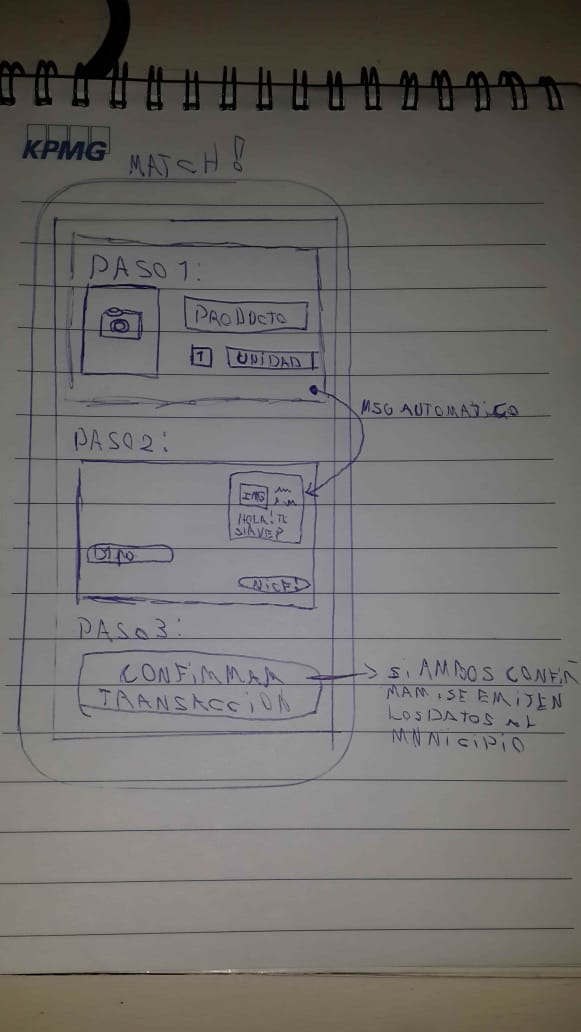 KPMG
MATCH!
PASO 1:
PRODUCTO
1 UNIDAD
MSG AUTOMATICO
PASO 2:
IMG
HOLA! TE
SIRVE?
NICE!
PASO 3:
CONFIRMAR
TRANSACCIÓN
SI AMBOS CONFIR
MAN, SE EMITEN
LOS DATOS AL
MUNICIPIO